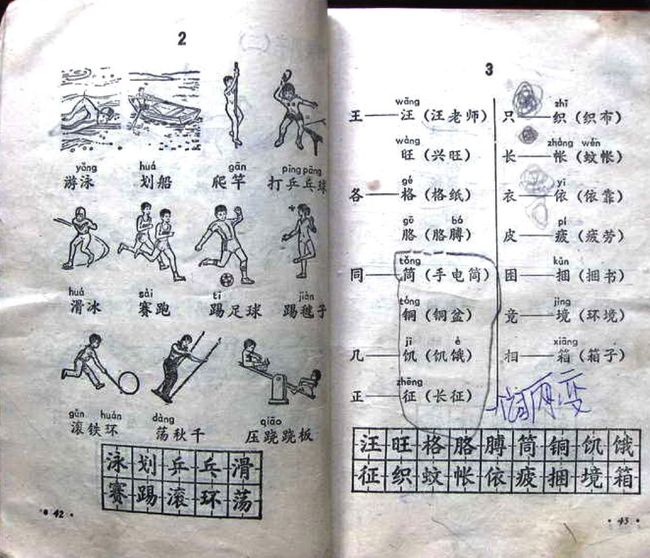 2
yǒng huá gān pīng pāng
游泳 划船 爬竿 打乒乓球
huá sài tī jiàn
滑冰 赛跑 踢足球 踢毽子
gǔn huán dàng qiāo
滚铁环 荡秋千 压跷跷板
泳 划 乒 乓 滑
赛 踢 滚 环 荡
42
3
wāng
王——汪(汪老师)
wàng
旺(兴旺)
gé
各——格(格纸)
gē bó
胳(胳膊)
tǒng
同——筒(手电筒)
tóng
铜(铜盆)
jī è
几——饥(饥饿)
zhēng
正——征(长征)
zhī
只——织(织布)
zhàng wén
长——帐(蚊帐)
yī
衣——依(依靠)
pí
皮——疲(疲劳)
kǔn
困——捆(捆书)
jìng
竟——境(环境)
xiāng
相——箱(箱子)
汪 旺 格 胳 膊 筒 铜 饥 饿
征 织 蚊 帐 依 疲 捆 境 箱
43